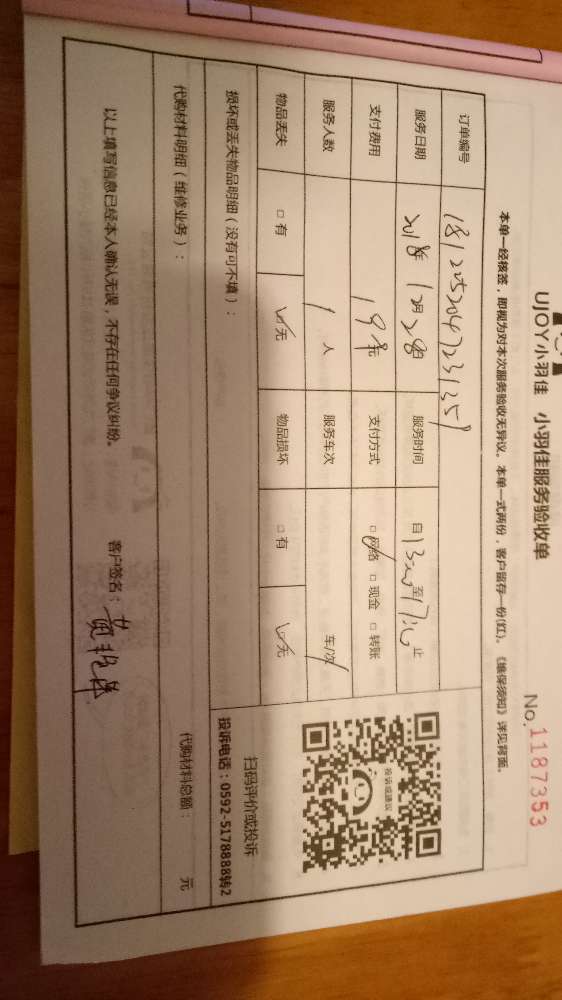 UJOY小羽佳 小羽佳服务验收单
No.1187353
本单一经核签，即视为对本次服务验收无异议。本单一式两份，客户留存一份(红)。《维保须知》详见背面。
订单编号 181225204723135
服务日期 2018年12月28日 服务时间 自13:00至17:00止
支付费用 198元 支付方式 □网络 □现金 □转账
服务人数 1人 服务车次 / 车/次
物品丢失 □有 □无 物品损坏 □有 □无
损坏或丢失物品明细（没有可不填）：
代购材料明细（维修业务）： 代购材料总额： 元
以上填写信息已经本人确认无误，不存在任何争议纠纷。 客户签名：黄
投诉或建议
扫码评价或投诉
投诉电话：0592-5178888转2